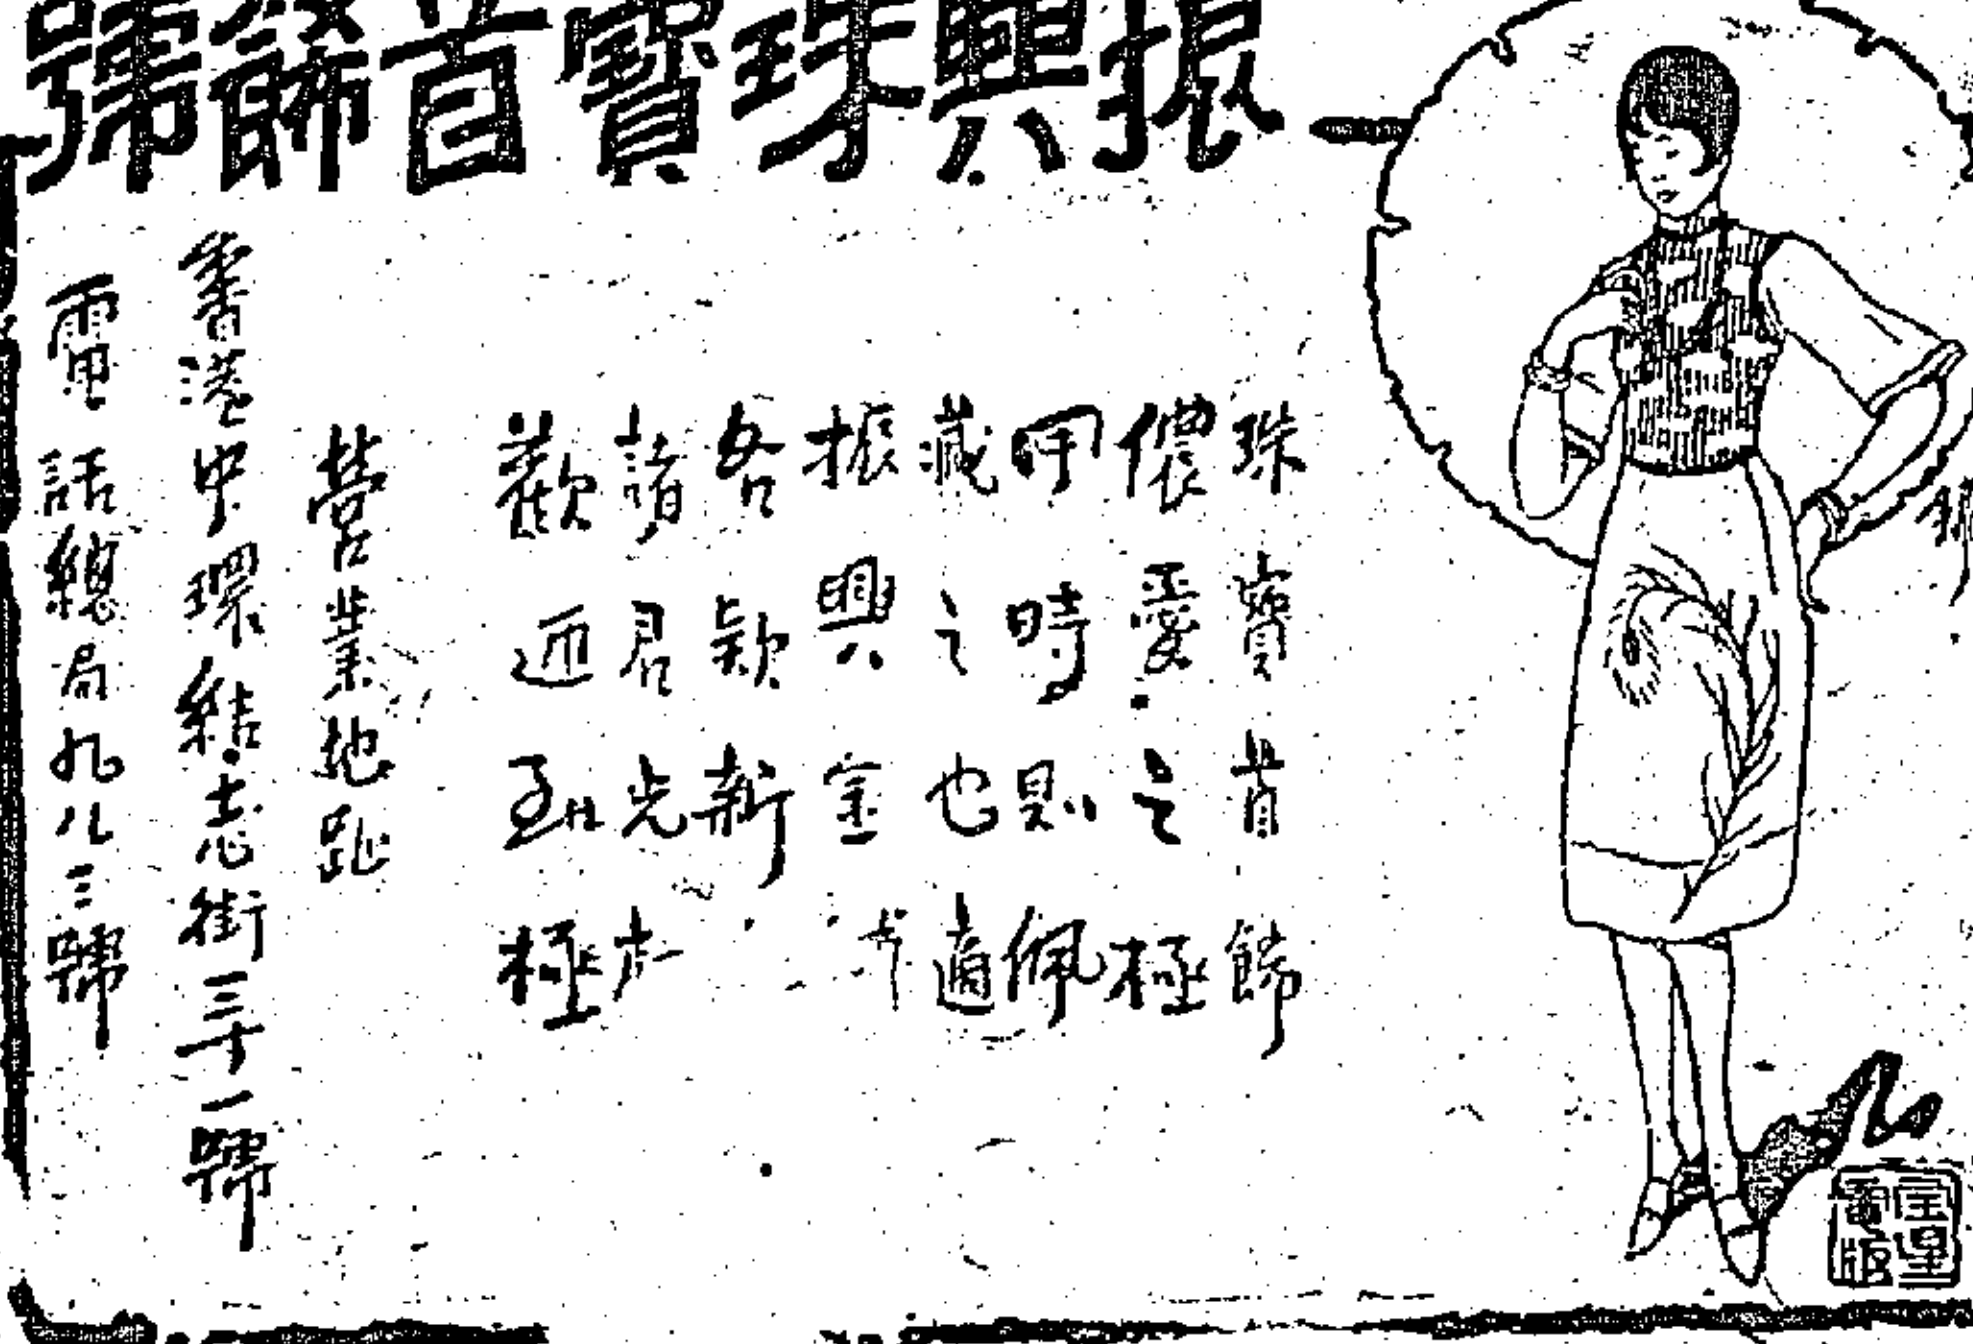 振興珠寶首飾號
珠寶首飾
儂愛之極
用時則佩
藏之也適
振興
各款新
君光步
歡迎極
營業地趾
香港中環結志街三十一號
電話總局九八三號
星
電版